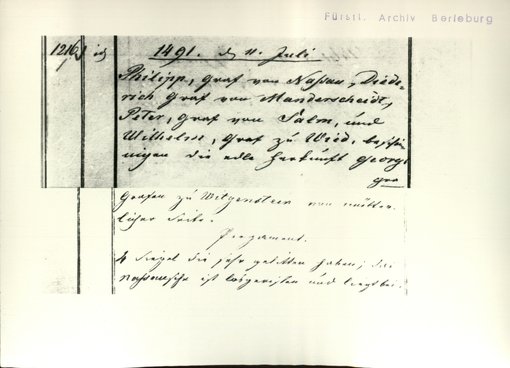 Fürstl. Archiv Berleburg
1216
1491. d 11. Juli
Philipp, Graf von Nassau, Diede-
rich Graf von Manderscheidt,
Peter, Graf von Salm, und
Wilhelm, Graf zu Wied, beschei-
nigen die edle Herkunft Georgs
Grafen zu Witgenstein von mütter-
licher Seite.
Pergament.
4 Siegel die sehr gelitten haben; das
nassauische ist losgerissen und liegt bei.